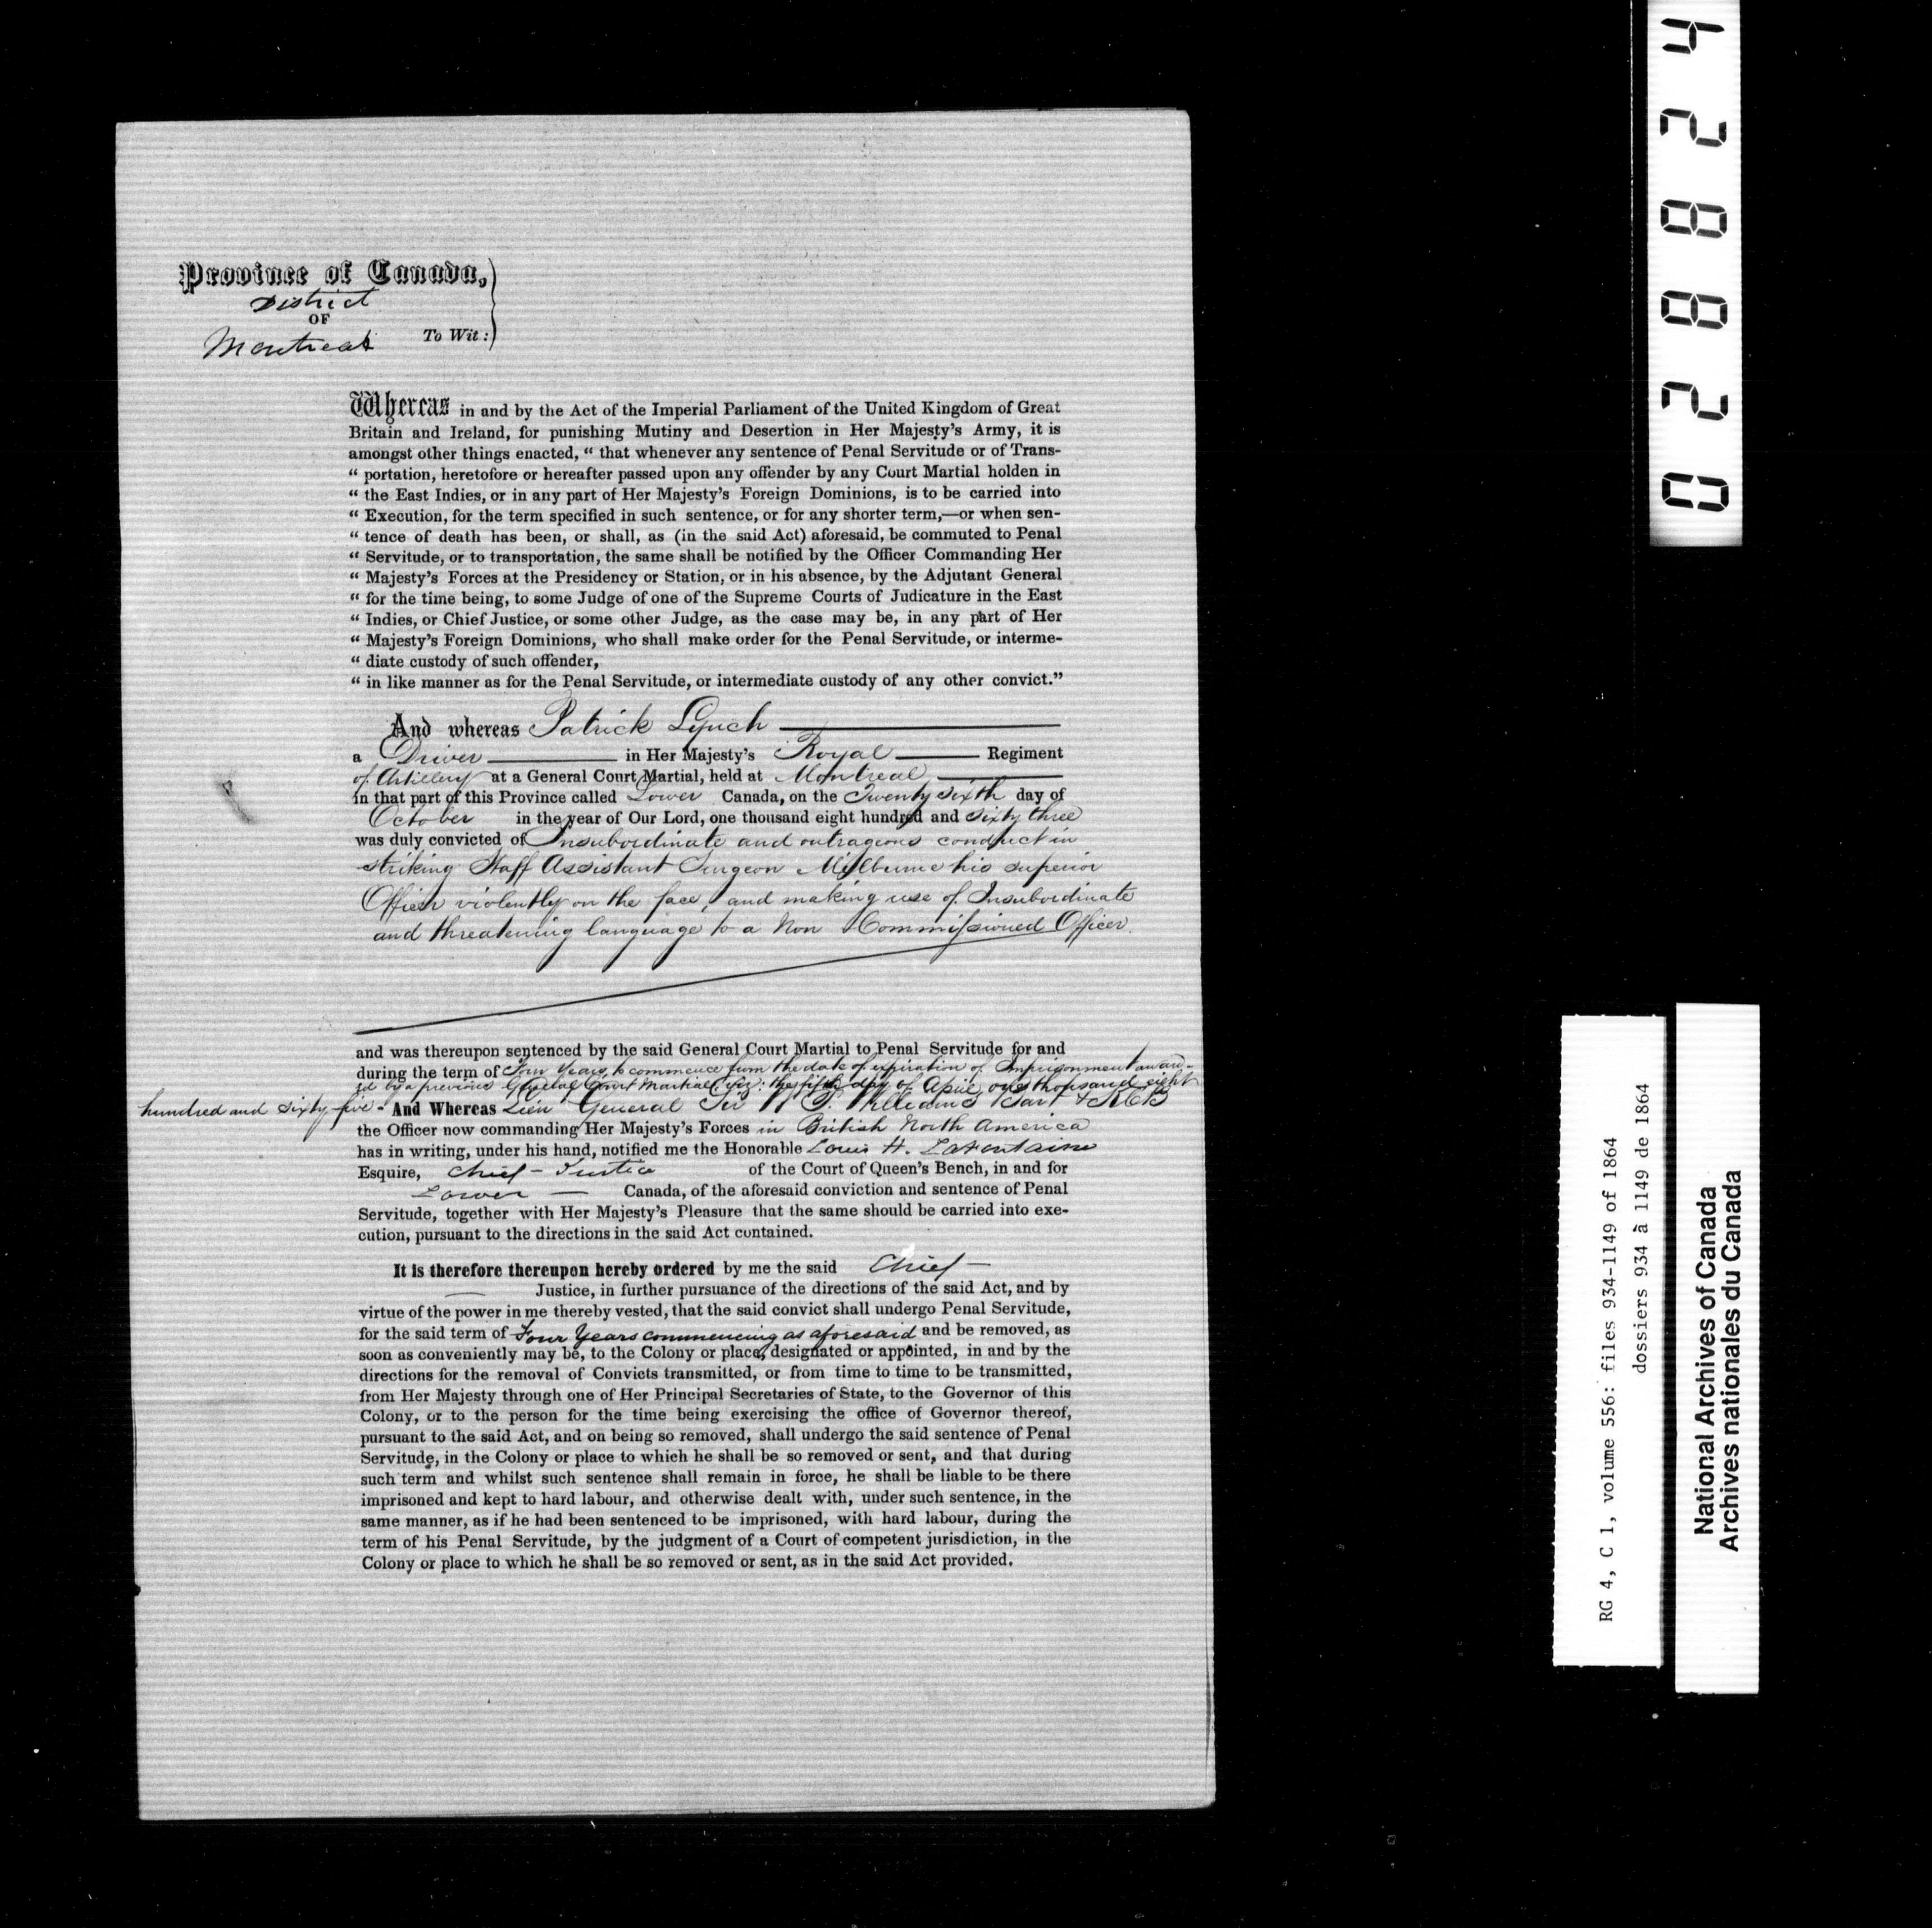 Province of Canada,
District
OF
Montreal To Wit:
Whereas in and by the Act of the Imperial Parliament of the United Kingdom of Great
Britain and Ireland, for punishing Mutiny and Desertion in Her Majesty's Army, it is
amongst other things enacted, “ that whenever any sentence of Penal Servitude or of Trans-
“ portation, heretofore or hereafter passed upon any offender by any Court Martial holden in
“ the East Indies, or in any part of Her Majesty's Foreign Dominions, is to be carried into
“ Execution, for the term specified in such sentence, or for any shorter term,—or when sen-
“ tence of death has been, or shall, as (in the said Act) aforesaid, be commuted to Penal
“ Servitude, or to transportation, the same shall be notified by the Officer Commanding Her
“ Majesty's Forces at the Presidency or Station, or in his absence, by the Adjutant General
“ for the time being, to some Judge of one of the Supreme Courts of Judicature in the East
“ Indies, or Chief Justice, or some other Judge, as the case may be, in any part of Her
“ Majesty's Foreign Dominions, who shall make order for the Penal Servitude, or interme-
“ diate custody of such offender,
“ in like manner as for the Penal Servitude, or intermediate custody of any other convict.”
And whereas Patrick Lynch
a Driver in Her Majesty's Royal Regiment
of Artillery at a General Court Martial, held at Montreal
in that part of this Province called Lower Canada, on the Twenty sixth day of
October in the year of Our Lord, one thousand eight hundred and sixty three
was duly convicted of Insubordinate and outrageous conduct in
striking Staff Assistant Surgeon Milburne his superior
Officer violently on the face, and making use of Insubordinate
and threatening language to a Non Commissioned Officer.
and was thereupon sentenced by the said General Court Martial to Penal Servitude for and
during the term of Four Years, to commence from the date of expiration of Imprisonment award-
ed by a previous General Court Martial, viz: the fifth day of April one thousand eight
hundred and sixty five - And Whereas Lieu General Sir W F. Williams Bart & KCB
the Officer now commanding Her Majesty's Forces in British North America
has in writing, under his hand, notified me the Honorable Louis H. LaFontaine
Esquire, Chief - Justice of the Court of Queen's Bench, in and for
Lower — Canada, of the aforesaid conviction and sentence of Penal
Servitude, together with Her Majesty's Pleasure that the same should be carried into exe-
cution, pursuant to the directions in the said Act contained.
It is therefore thereupon hereby ordered by me the said Chief —
Justice, in further pursuance of the directions of the said Act, and by
virtue of the power in me thereby vested, that the said convict shall undergo Penal Servitude,
for the said term of Four Years commencing as aforesaid and be removed, as
soon as conveniently may be, to the Colony or place, designated or appointed, in and by the
directions for the removal of Convicts transmitted, or from time to time to be transmitted,
from Her Majesty through one of Her Principal Secretaries of State, to the Governor of this
Colony, or to the person for the time being exercising the office of Governor thereof,
pursuant to the said Act, and on being so removed, shall undergo the said sentence of Penal
Servitude, in the Colony or place to which he shall be so removed or sent, and that during
such term and whilst such sentence shall remain in force, he shall be liable to be there
imprisoned and kept to hard labour, and otherwise dealt with, under such sentence, in the
same manner, as if he had been sentenced to be imprisoned, with hard labour, during the
term of his Penal Servitude, by the judgment of a Court of competent jurisdiction, in the
Colony or place to which he shall be so removed or sent, as in the said Act provided.
028824
RG 4, C 1, volume 556: files 934-1149 of 1864
dossiers 934 à 1149 de 1864
National Archives of Canada
Archives nationales du Canada